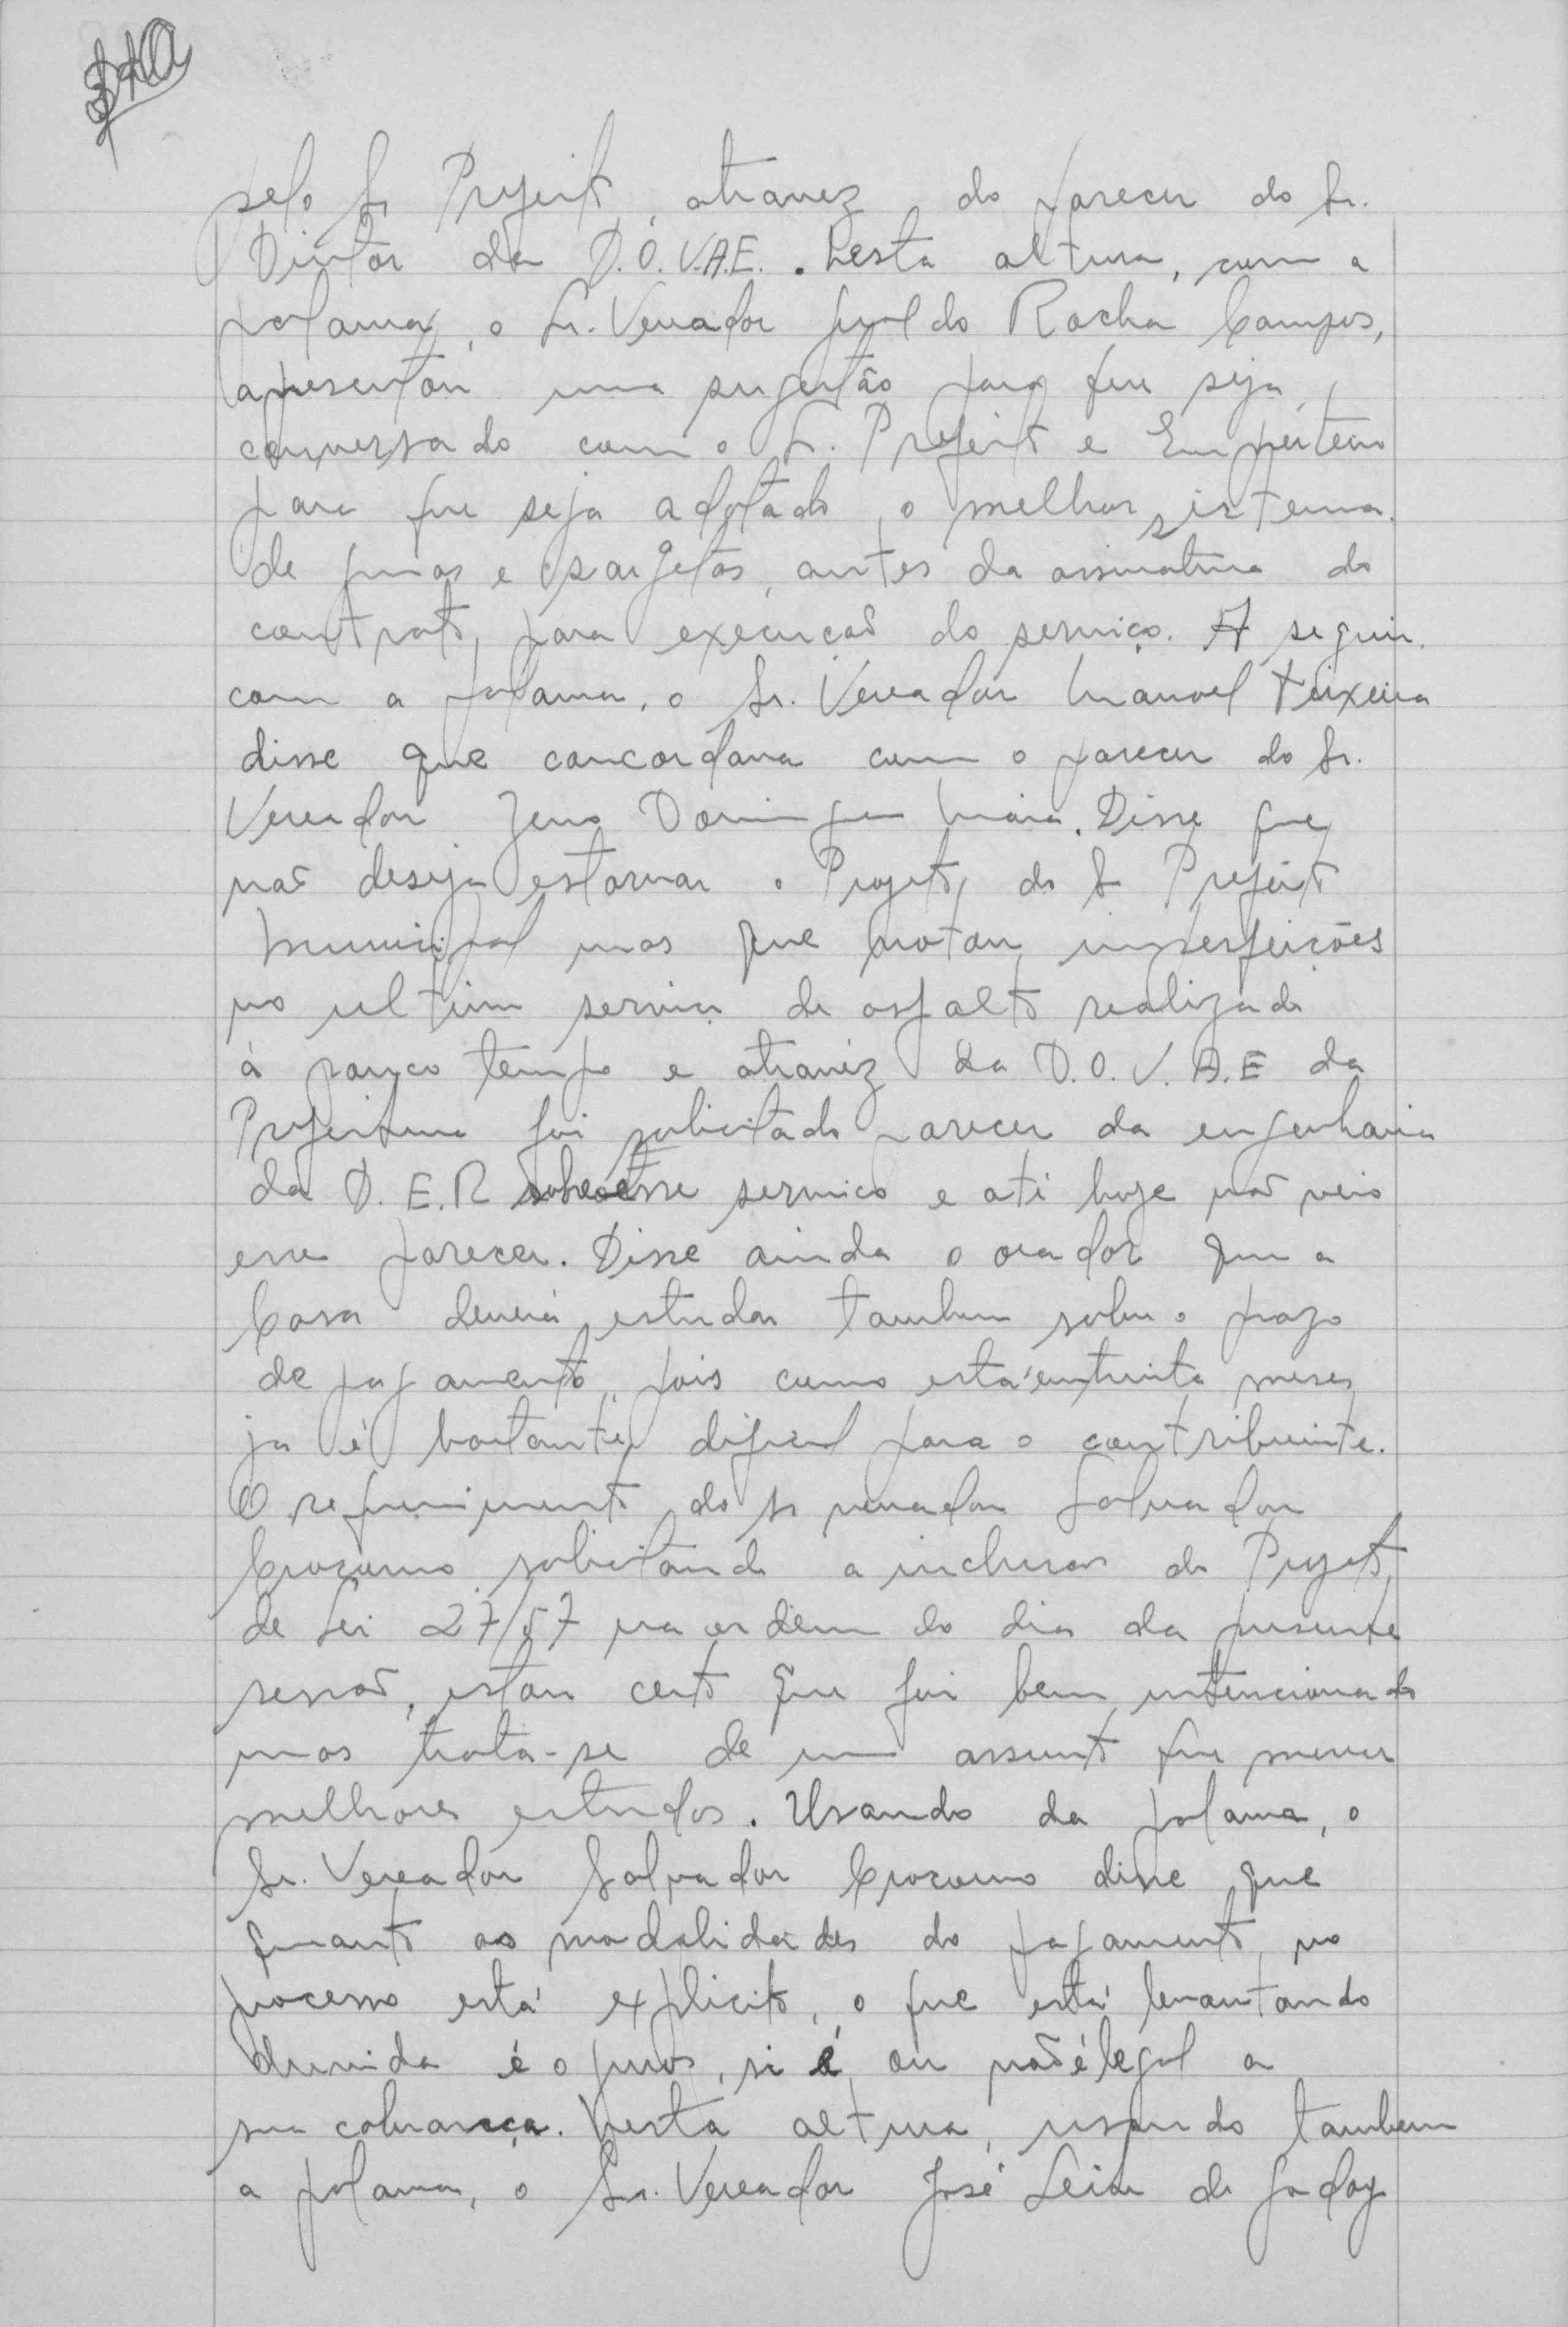 pelo Sr Prefeito, atravez do parecer do Sr.
Diretor da D.O.V.A.E. Nesta altura, com a
palavra, o Sr. Vereador Geraldo Rocha Campos,
apresentou uma sugestão para que seja
conversado com o Sr. Prefeito e Empreiteiro
para que seja adotado o melhor sistema
de guias e sargetas, antes da assinatura do
contrato, para execucaõ do serviço. A seguir
com a palavra, o Sr. Vereador Manoel Teixeira
disse que concordava com o parecer do Sr.
Vereador Domingues Maia. Disse que
naõ deseja estorvar o Projeto do Sr Prefeito
Municipal mas que notou imperfeicões
no ultimo serviço de asfalto realizado
á pouco tempo e atravéz da D.O.V.A.E da
Prefeitura foi solicitado parecer da engenharia
da D.E.R sobre esse servico e até hoje naõ veio
esse parecer. Disse ainda o orador que a
Casa deverá estudar tambem sobre o prazo
de pagamento, pois como está em trinta meses
ja é bastante dificil para o contribuinte.
O requerimento do sr vereador Salvador
solicitando a inclusaõ do Projeto
de Lei 27/57 na ordem do dia da presente
sessaõ, estou certo que foi bem intencionado
mas trata-se de um assunto que merece
melhores estudos. Usando da palavra, o
Sr. Vereador Salvador disse que
quanto as modalidades do pagamento, no
processo está explicito, o que está levantando
duvida é o juros, si é ou naõ é legal a
sua cobrança. Nesta altura, usando tambem
a palavra, o Sr. Vereador José Leite de Godoy